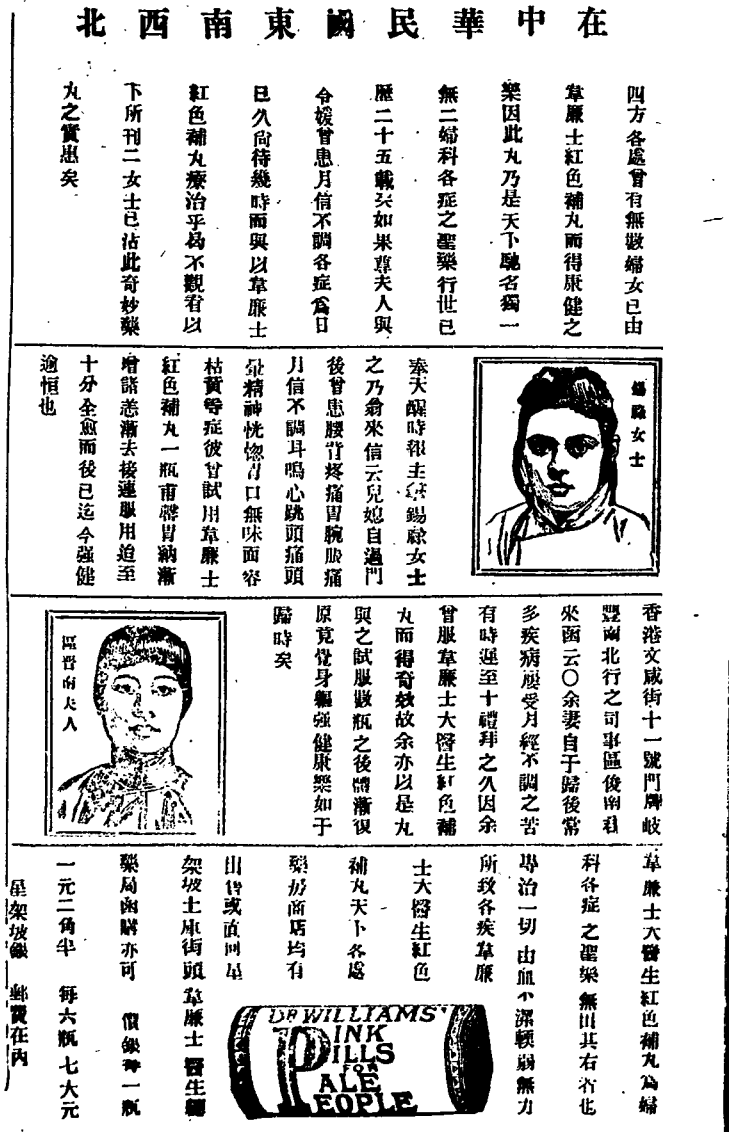 在中華民國東南西北
四方各處曾有無數婦女已由
韋廉士紅色補丸而得康健之
樂因此丸乃是天下馳名獨一
無二婦科各症之聖藥行世已
歷二十五載矣如果尊夫人與
令嬡曾患月信不調各症為日
已久尚待幾時而與以韋廉士
紅色補丸療治乎曷不觀看以
下所刊二女士已沾此奇妙藥
丸之實惠矣
錫祿女士
奉天醒時報主錫祿女士
之乃翁來信云兒媳自過門
後曾患腰背疼痛胃脘脹痛
月信不調耳鳴心跳頭痛頭
暈精神恍惚胃口無味面容
枯黃等症彼曾試用韋廉士
紅色補丸一瓶甫罄胃納漸
增諸恙漸去接連服用迨至
十分全愈而後已迄今强健
逾恒也
香港文咸街十一號門牌岐
豐南北行之司事區俊南君
來函云〇余妻自于歸後常
多疾病屢受月經不調之苦
有時遲至十禮拜之久因余
曾服韋廉士大醫生紅色補
丸而得奇效故余亦以是丸
與之試服數瓶之後體漸復
原竟覺身軀强健康樂如于
歸時矣
區晉南夫人
韋廉士大醫生紅色補丸為婦
科各症之聖藥無出其右者也
專治一切由血少潔軟弱無力
所致各疾韋廉
士大醫生紅色
補丸天下各處
藥房商店均有
出售或直向星
架坡土庫街頭韋廉士醫生
藥局函購亦可 價銀每一瓶
一元二角半 每六瓶七大元
星架坡銀 郵費在內
DR WILLIAMS'
PINK
PILLS
FOR
PALE
PEOPLE